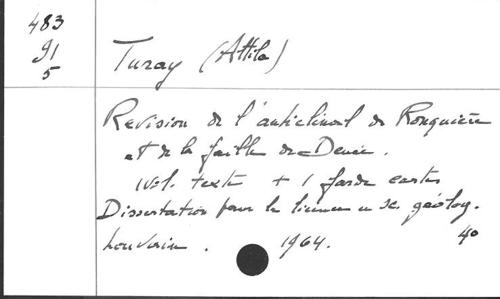 483
91
5
Turay (Attila)
Revision de l'anticlinal de Ronquière
et de la faille de Denée.
1 vol. texte + 1 farde cartes
Dissertation pour la licence en sc. géolog.
Louvain. 1964. 4°